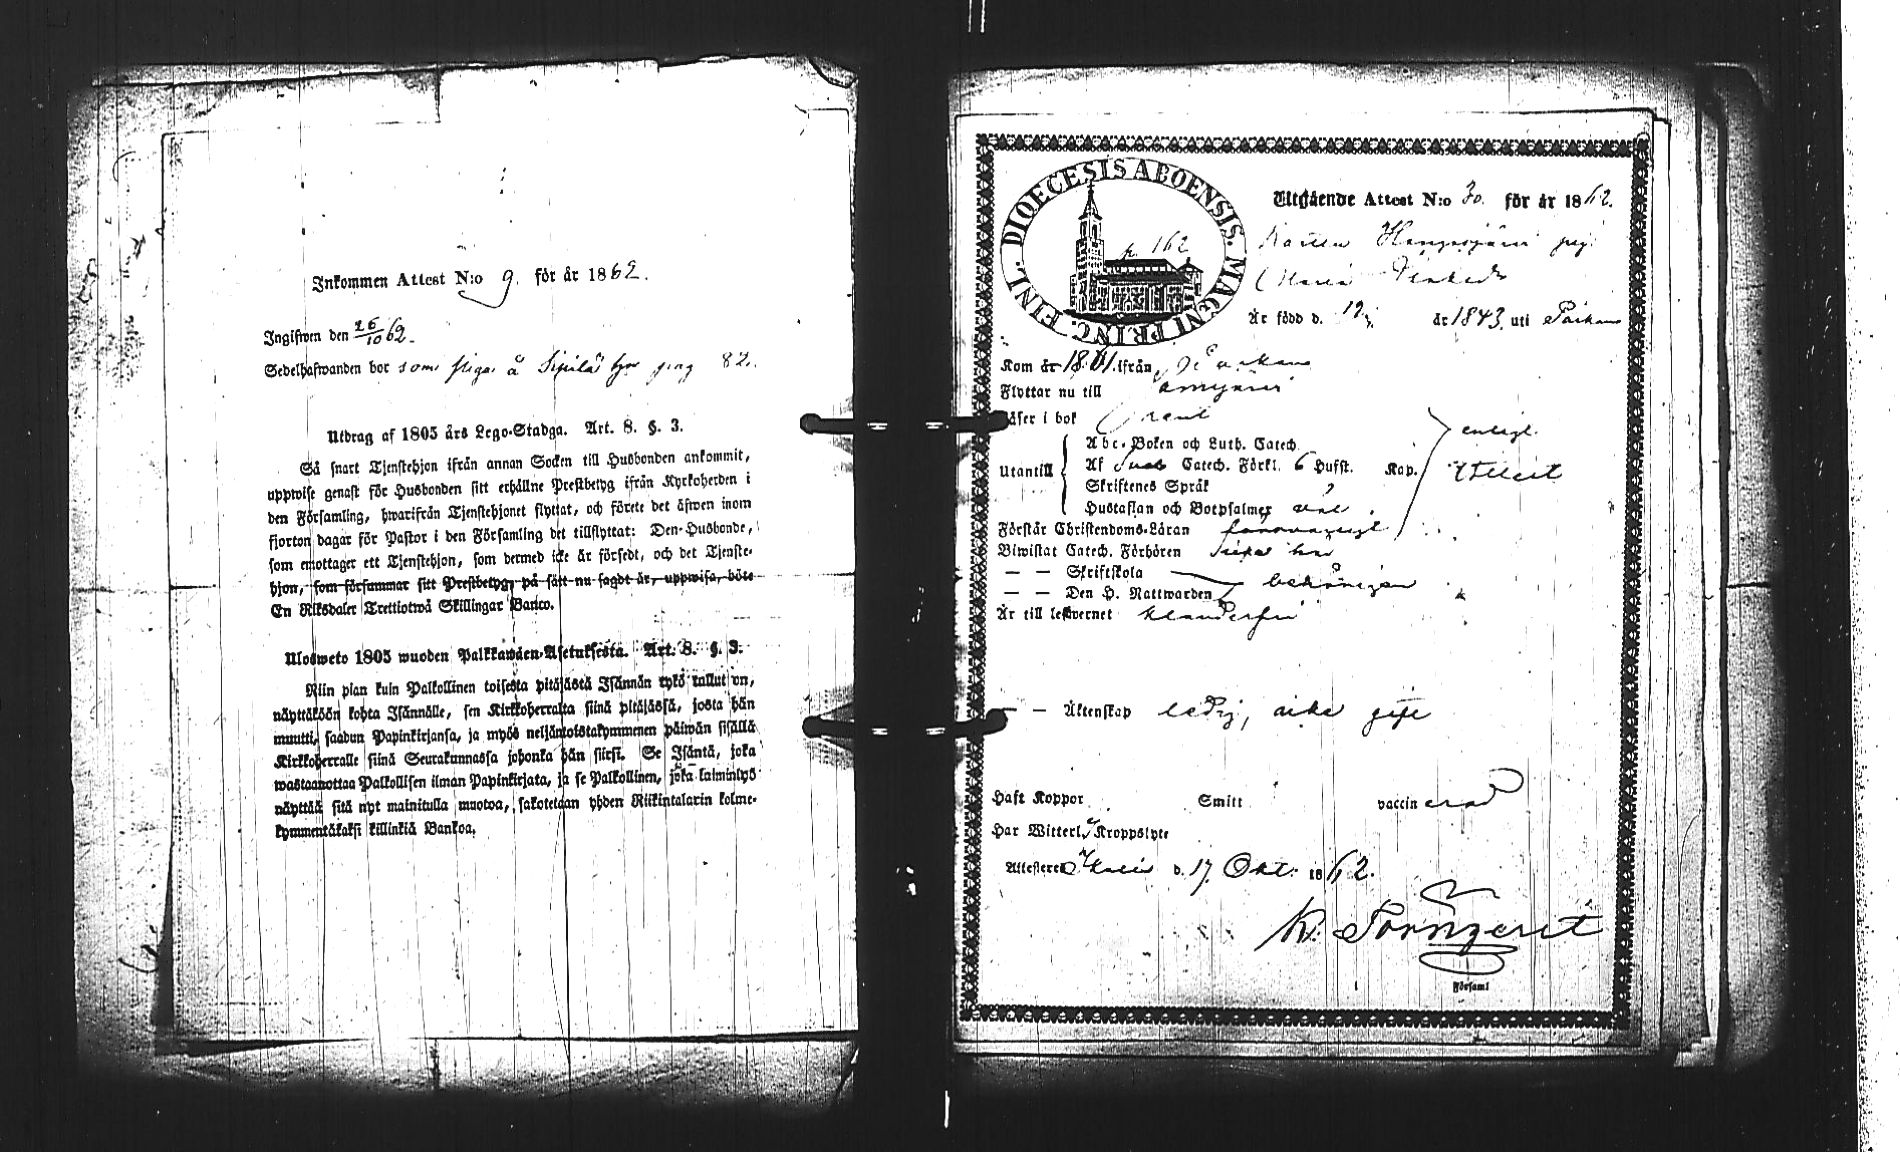 Inkommen Attest N:o 9. för år 1862.
Ingifwen den 26/10 62.
Sedelhafwanden bor som piga å Sipilä pag 82.
Utdrag af 1805 års Lego-Stadga. Art. 8. §. 3.
Så snart Tjenstehjon ifrån annan Socken till Husbonden ankommit,
uppwise genast för Husbonden sitt erhållne Prestbetyg ifrån Kyrkoherden i
den Församling, hwarifrån Tjenstehjonet flyttat, och förete det äfwen inom
fjorton dagar för Pastor i den Församling det tillflyttat: Den Husbonde,
som emottager ett Tjenstehjon, som dermed icke är försedt, och det Tjenste-
hjon, som försummar sitt Prestbetyg, på sätt nu sagdt är, uppwisa, böte
En Riksdaler Trettiotwå Skillingar Banco.
Ulosweto 1805 wuoden Palkkawäen-Asetuksesta. Art. 8. §. 3.
Niin pian kuin Palkollinen toisesta pitäjästä Isännän tykö tullut on,
näyttäköön kohta Isännälle, sen Kirkkoherralta siinä pitäjässä, josta hän
muutti, saadun Papinkirjansa, ja myös neljäntoistakymmenen päiwän sisällä
Kirkkoherralle siinä Seurakunnassa johonka hän siirsi. Se Isäntä, joka
wastaanottaa Palkollisen ilman Papinkirjata, ja se Palkollinen, joka laiminlyö
näyttää sitä nyt mainitulla muotoa, sakotetaan yhden Riikintalarin kolme-
kymmentäkaksi killinkiä Bankoa.
DIOECESIS ABOENSIS. MAGNI PRINC. FINL.
p. 162
Utgående Attest N:o 30. för år 1862.
Maria
Är född d. 12 år 1843. uti Parkano
Kom år 1861. ifrån Parkano
Flyttar nu till
Läser i bok
Abc-Boken och Luth. Catech.
Utantill Af Catech. Förkl. 6 Hufst. Kap.
Skriftenes Språk
Hustaflan och Botpsalmer
Förstår Christendoms-Läran
Biwistat Catech. Förhören
— — Skriftskola
— — Den H. Nattwarden behörigen
Är till lefwernet klanderfri
— — Äktenskap ledig, icke gift
Haft Koppor Smitt vaccin
Har Witterl. Kroppslyte
Attesterar d. 17 Okt. 1862.
K. Törnqvist
Församl